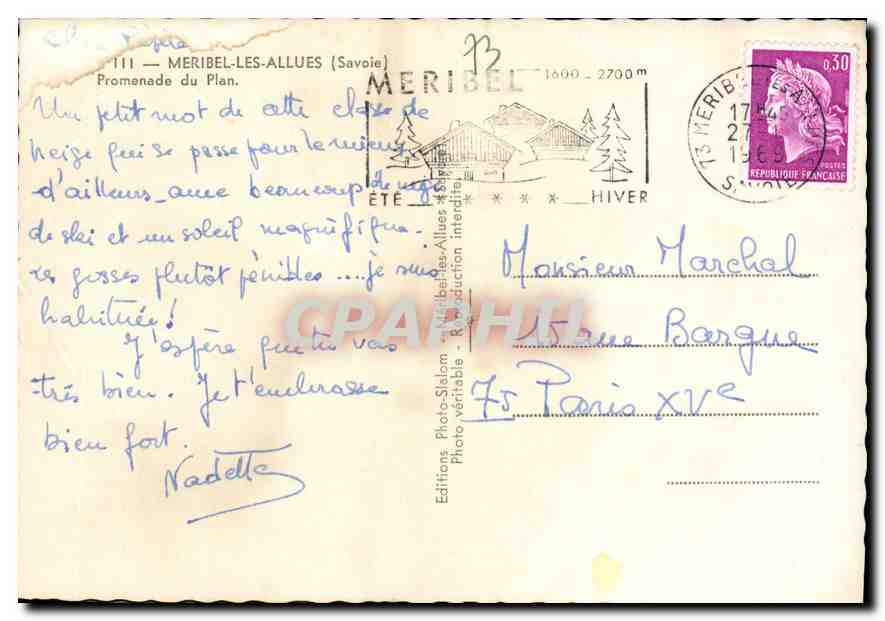 père
111 — MERIBEL-LES-ALLUES (Savoie)
Promenade du Plan.
Un petit mot de cette classe de
neige qui se passe pour le mieux
d'ailleurs avec beaucoup de neige
de ski et un soleil magnifique.
Les gosses plutôt pénibles .... je suis
habituée !
J'espère que tu vas
très bien. Je t'embrasse
bien fort.
Nadette
73
MERIBEL 1600 - 2700 m
ÉTÉ * * * * * HIVER
73 MERIBEL-LES-ALLUES
17H
27
1969
SAVOIE
0,30
POSTES
RÉPUBLIQUE FRANÇAISE
Editions Photo-Slalom - Méribel-les-Allues (Savoie)
Photo véritable - Reproduction interdite
CPAPHIL
Monsieur Marchal
rue Bargue
75 Paris XVe